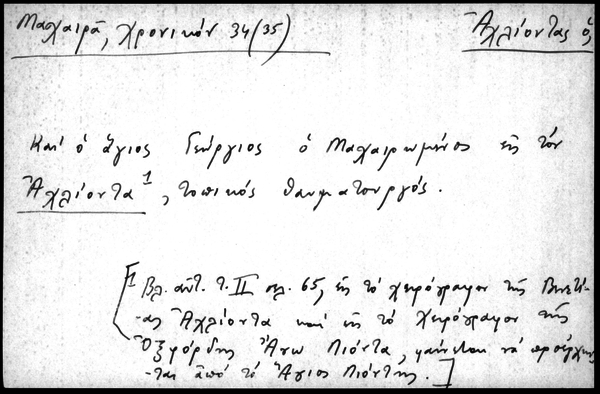 Μαχαιρᾶ, χρονικόν 34 (35)
Ἀχλίοντας ὁ,
Καί ὁ ἅγιος Γεώργιος ὁ Μαχαιρωμένος εἰς τόν
Ἀχλίοντα¹, τοπικός θαυματουργός.
[1 Βλ. αὐτ. τ. II σελ. 65, εἰς τό χειρόγραφον τῆς Βενετί-
-ας Ἀχλίοντα καί εἰς τό χειρόγραφον τῆς
Ὀξφόρδης Ἄνω Πιόντα, φαίνεται νά προέρχη-
-ται ἀπό τό Ἅγιος Πιόντης.]